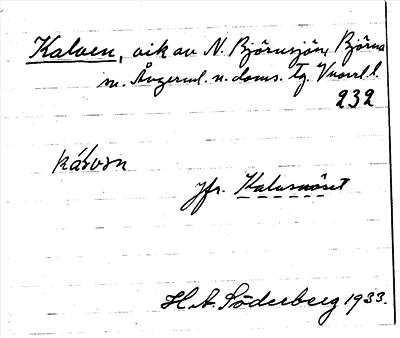 Kalven, vik av N. Björnsjön, Björna
sn. Ångerml. n. doms. tg. Vnorrl. l.
232
Jfr. Kalvsnöret
H. A. Söderberg 1933.